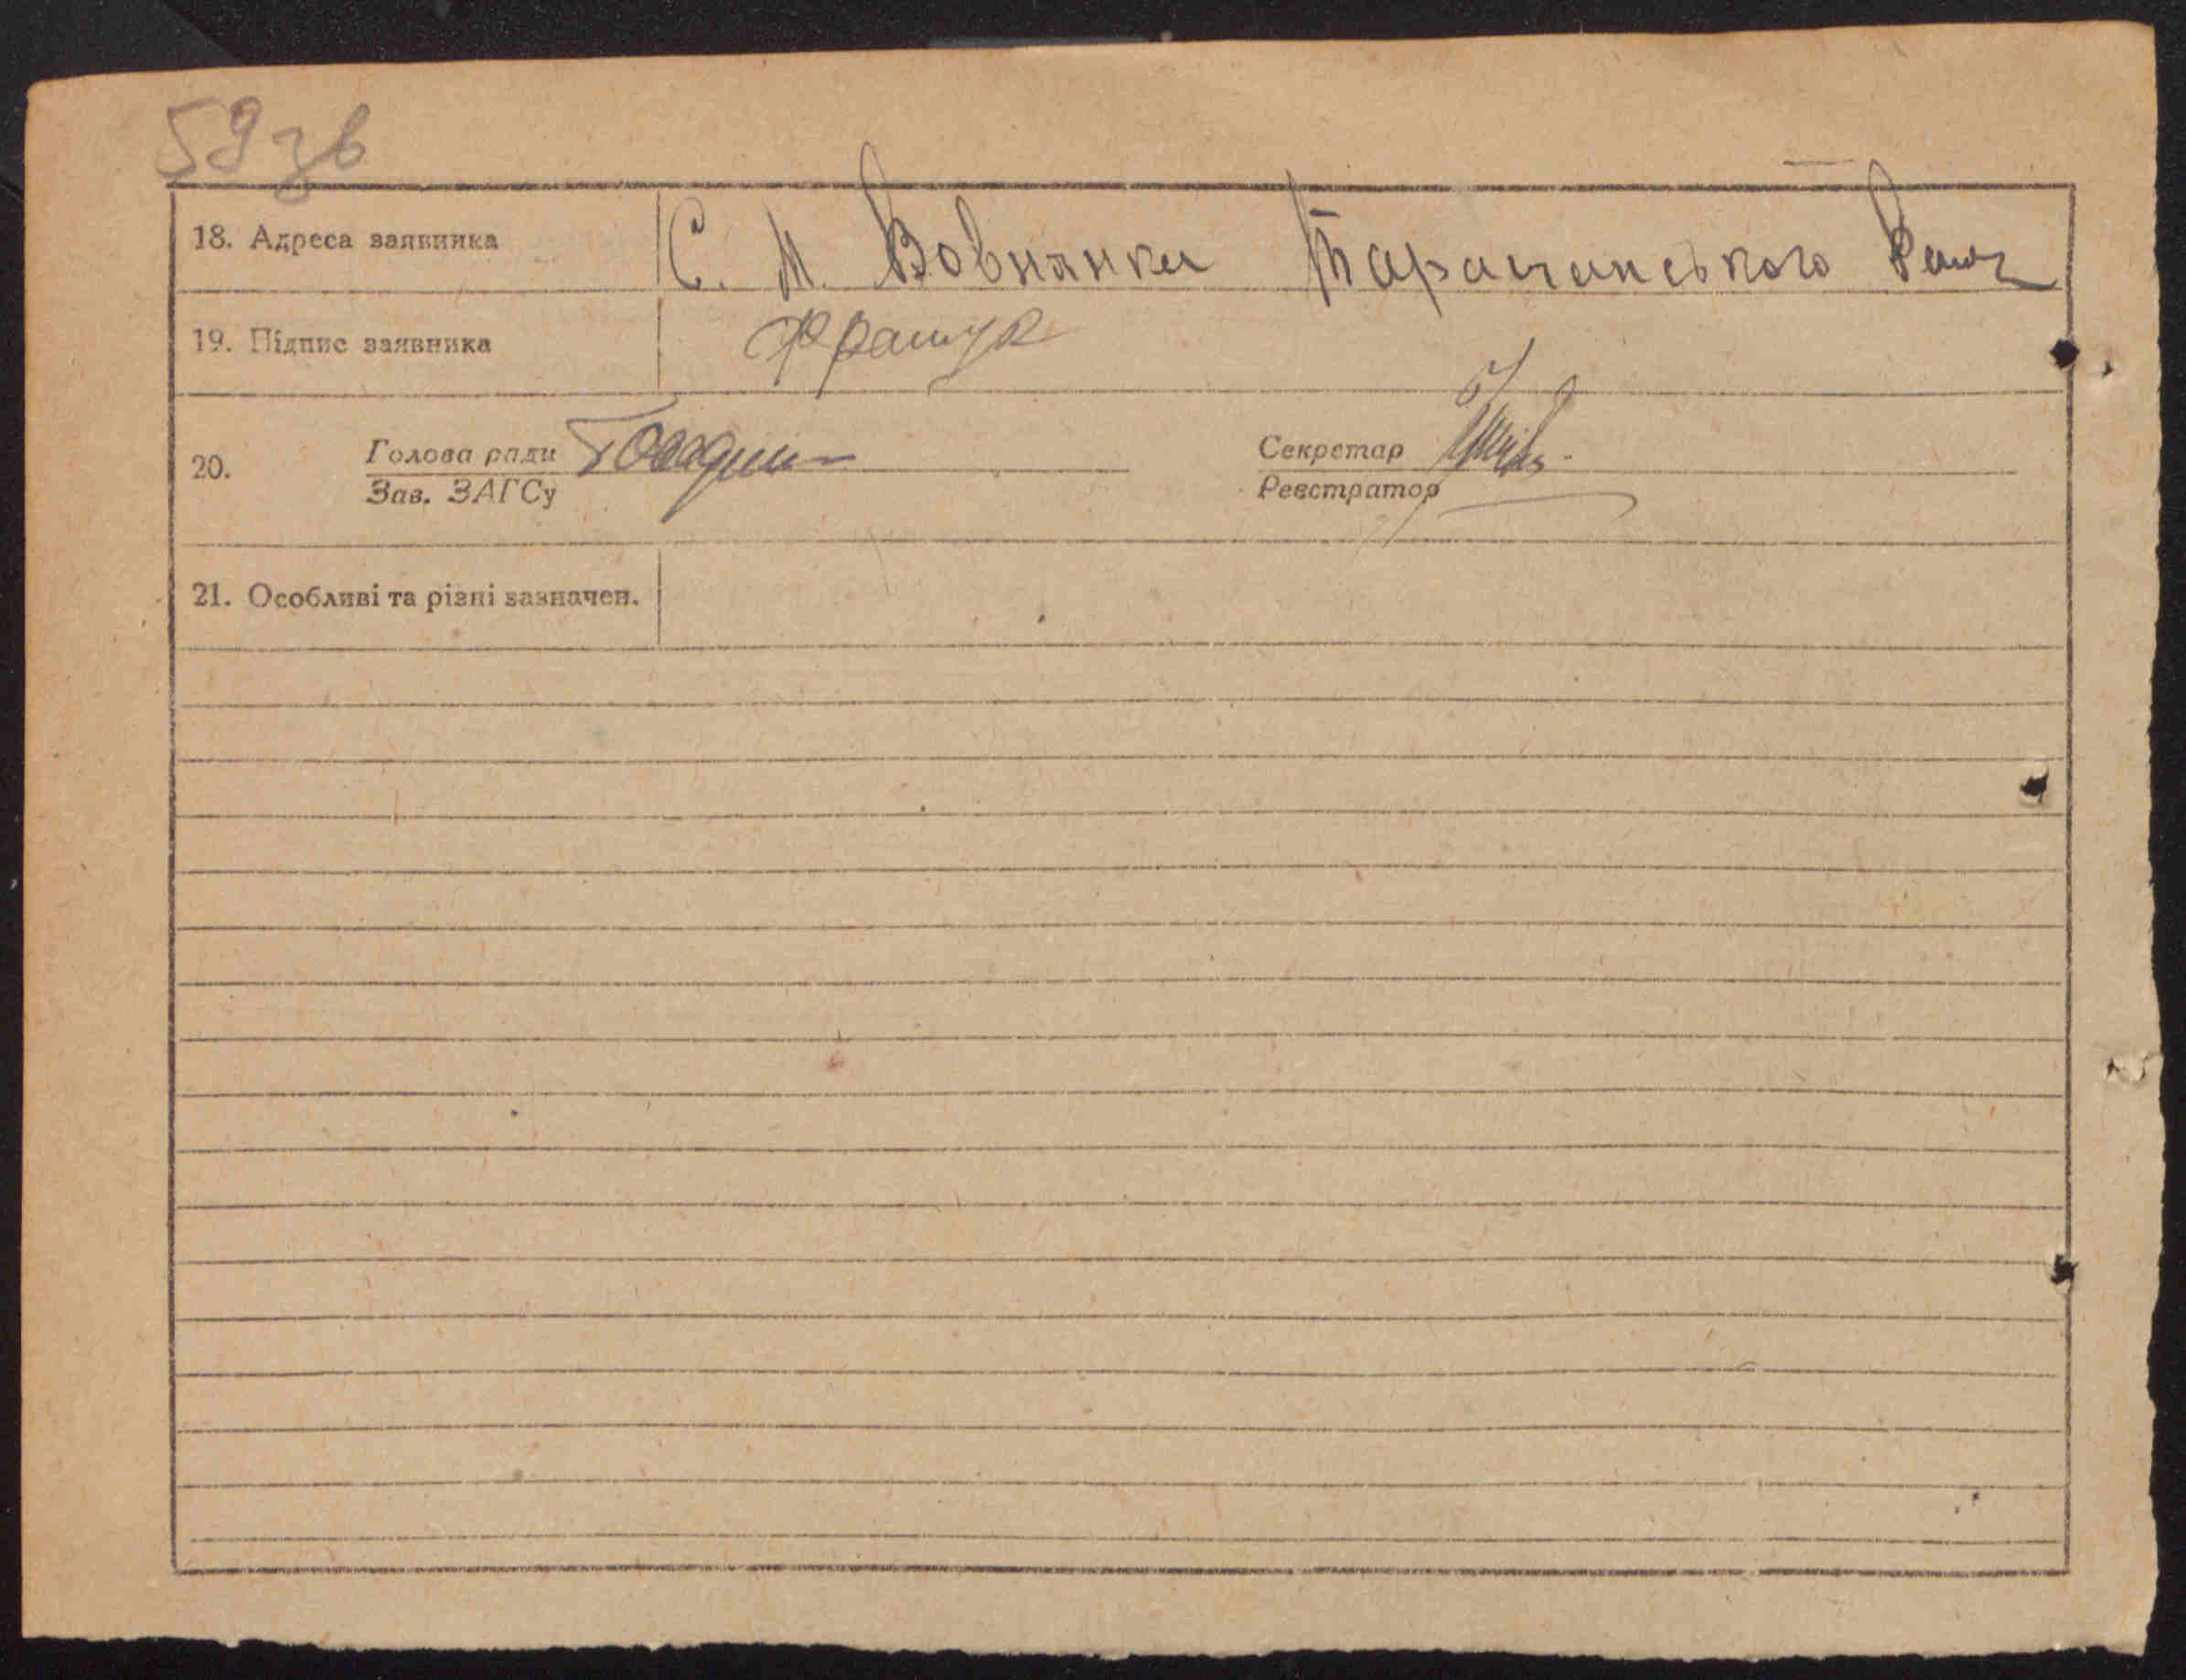 59 зв
18. Адреса заявника С. М. Вовнянка Таращанського Рай
19. Підпис заявника
20. Голова ради Секретар
Зав. ЗАГСу Реєстратор
21. Особливі та різні зазначен.